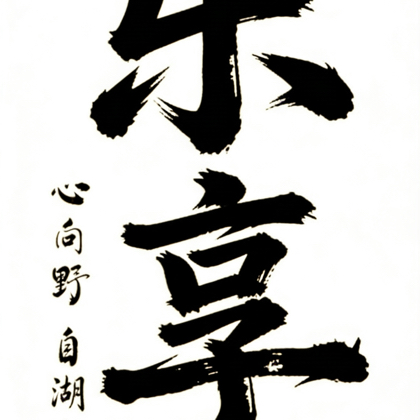 乐享
心向野 自湖